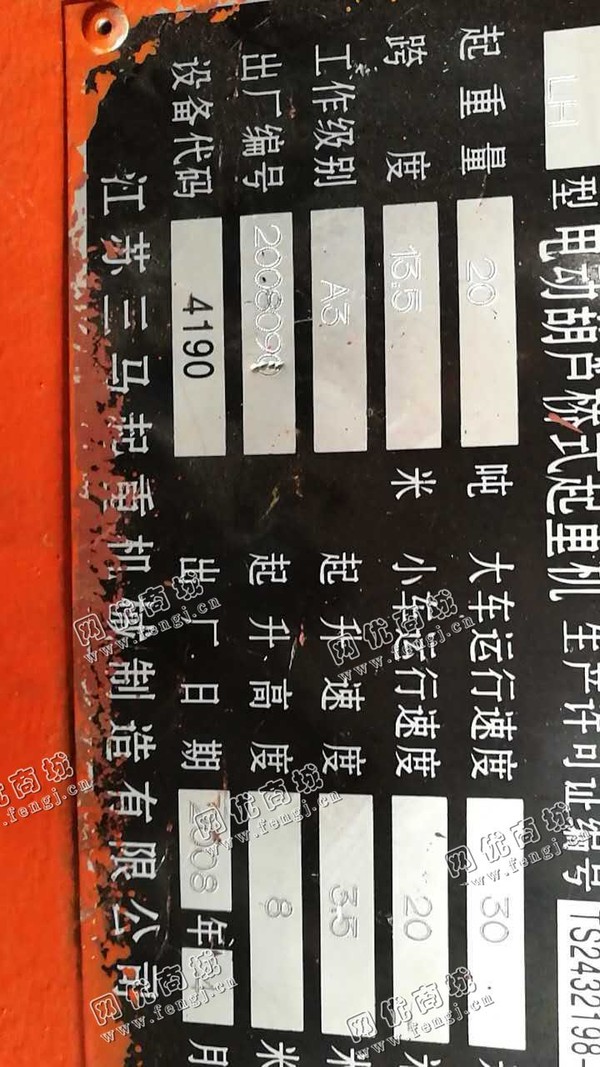 LH 型电动葫芦桥式起重机 生产许可证编号 TS2432198-
起重量 20 吨 大车运行速度 30
跨度 16.5 米 小车运行速度 20
工作级别 A3 起升速度 3.5 米
出厂编号 200809 起升高度 8 米
设备代码 4190 出厂日期 2008 年 月
江苏三马起重机械制造有限公司
网优商城
www.fengj.cn
网优商城
www.fengj.cn
网优商城
www.fengj.cn
网优商城
www.fengj.cn
网优商城
www.fengj.cn
网优商城
www.fengj.cn
网优商城
www.fengj.cn